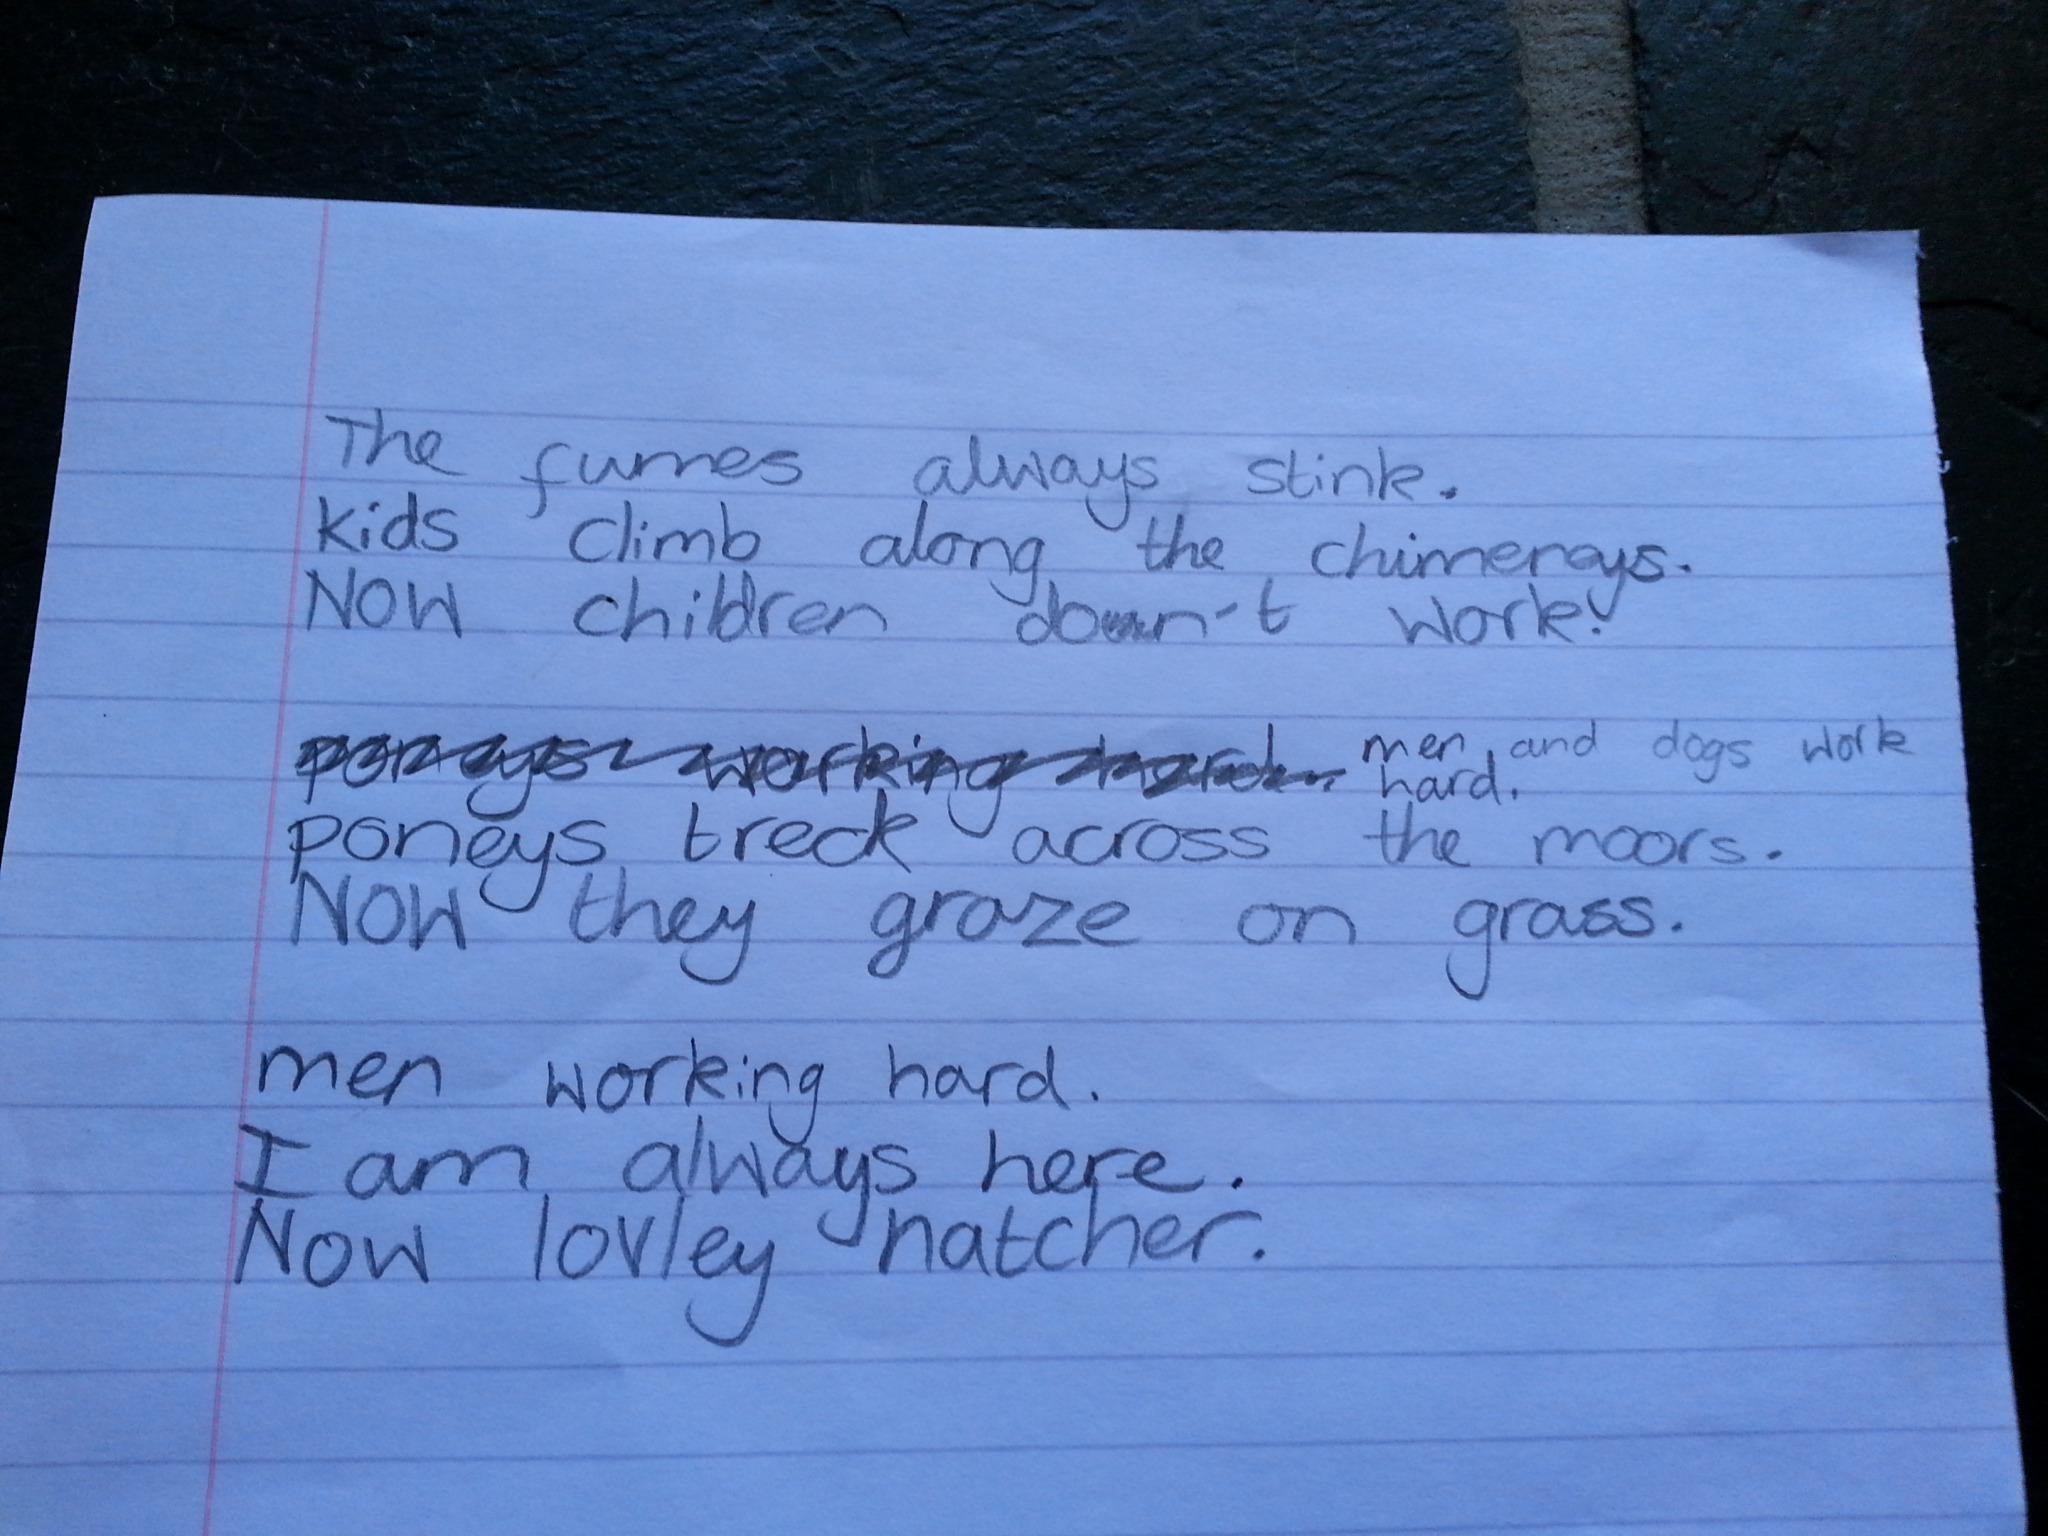 The fumes always stink.
kids climb along the chimeneys.
Now children don't work!
poneys working hard. men and dogs work
hard.
poneys treck across the moors.
Now they graze on grass.
men working hard.
I am always here.
Now lovley natcher.